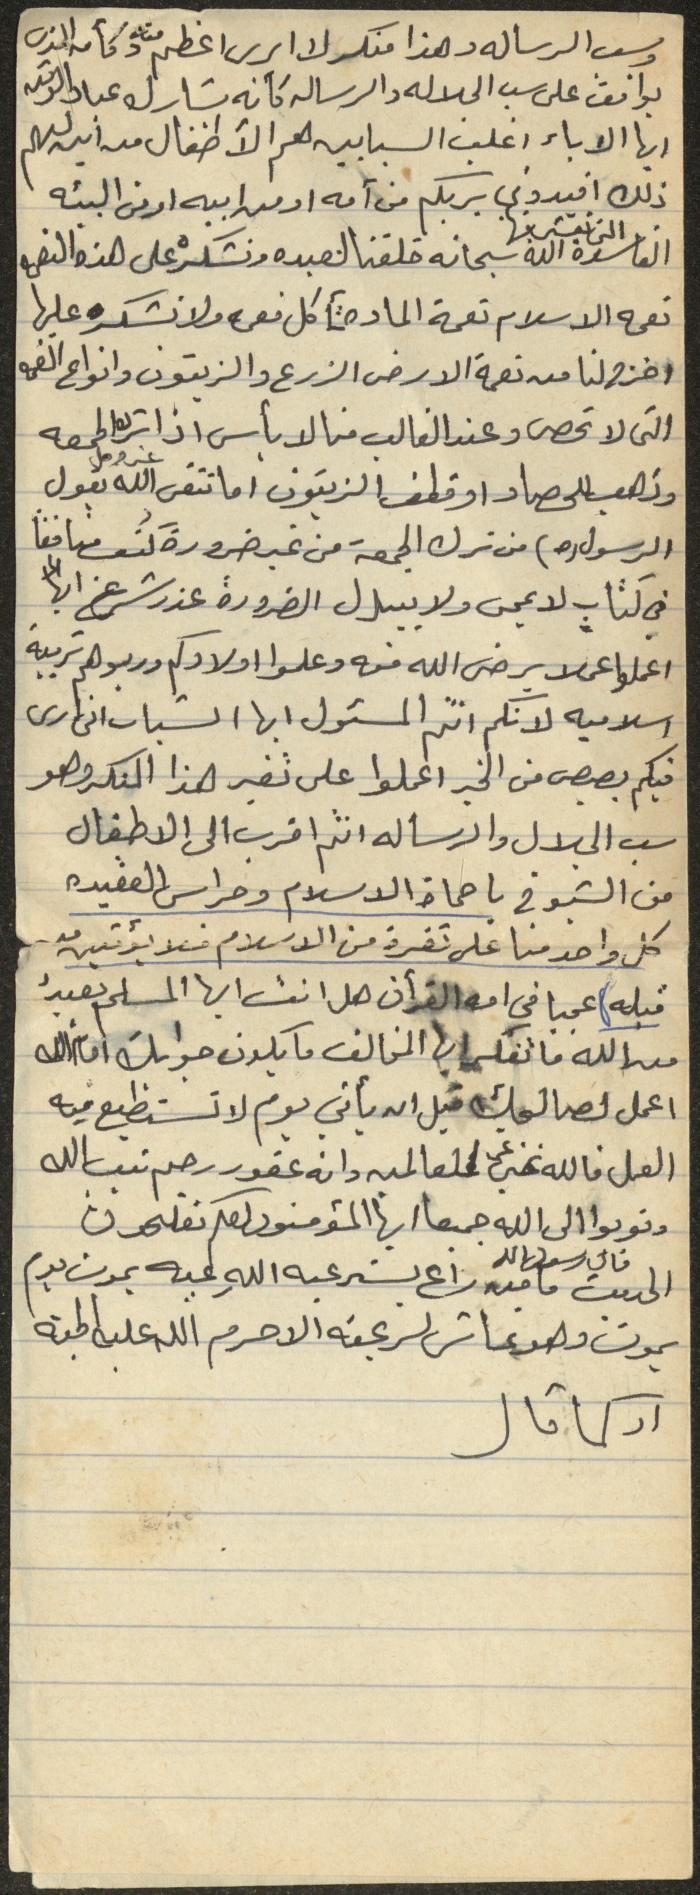 وسب الرساله وهذا منكر لا ارى اعظم منه وكأنه الذي
يوافق على سب الجلاله والرساله كأنه شارك عباد الوثنيه
ايها الاباء اغلب السبابين هم الأطفال من أين لهم
ذلك افيدوني بربكم من أمه او من ابيه او من البيئه
الفاسدة التي نعيش بها الله سبحانه خلقنا لنعبده ونشكره على هذه النعمه
نعمه الاسلام نعمة الماده نأكل نعمه ولا نشكره عليها
اخرج لنا من نعمة الارض الزرع والزيتون وانواع النعمه
التى لا تحصى وعند الغالب منا لا بأس اذا ترك الجمعه
وذهب للحصاد او قطف الزيتون اما تتقى الله عز وجل يقول
الرسول (ص) من ترك الجمعة من غير ضرورة كُتب منافقاً
في كتابٍ لا يمحى ولا يبدل الضرورة عذر شرعي ايها
اعملوا عملا يرضى الله عنه وعلموا اولادكم وربوهم تربية
اسلاميه لأنكم انتم المسئول ايها الشباب انى ارى
فيكم بصيص من الخير اعملوا على تغير هذا المنكر وهو
سب الجلال والرساله انتم اقرب الى الاطفال
من الشيوخ يا حماة الاسلام وحراس العقيده
كل واحد منا على ثغرة من الاسلام فلا يؤتين من
قبله عجبا في امه القرأن هل انت ايها المسلم بعيد
من الله ما تفكر ايها المخالف ما يكون جوابك امام الله
اعمل لصالحك قبل ان يأتي يوم لا تستطيع فيه
العمل فالله غني عن العالمين وانه غفور رحيم نتب الله
وتوبوا الى الله جميعا ايها المؤمنون لعلكم تفلحون
الحديث قال رسول الله ما من راع يسترعيه الله رعيه يموت يوم
يموت وهو غاش لرعيته الا حرم الله عليه الجنة
او كما قال